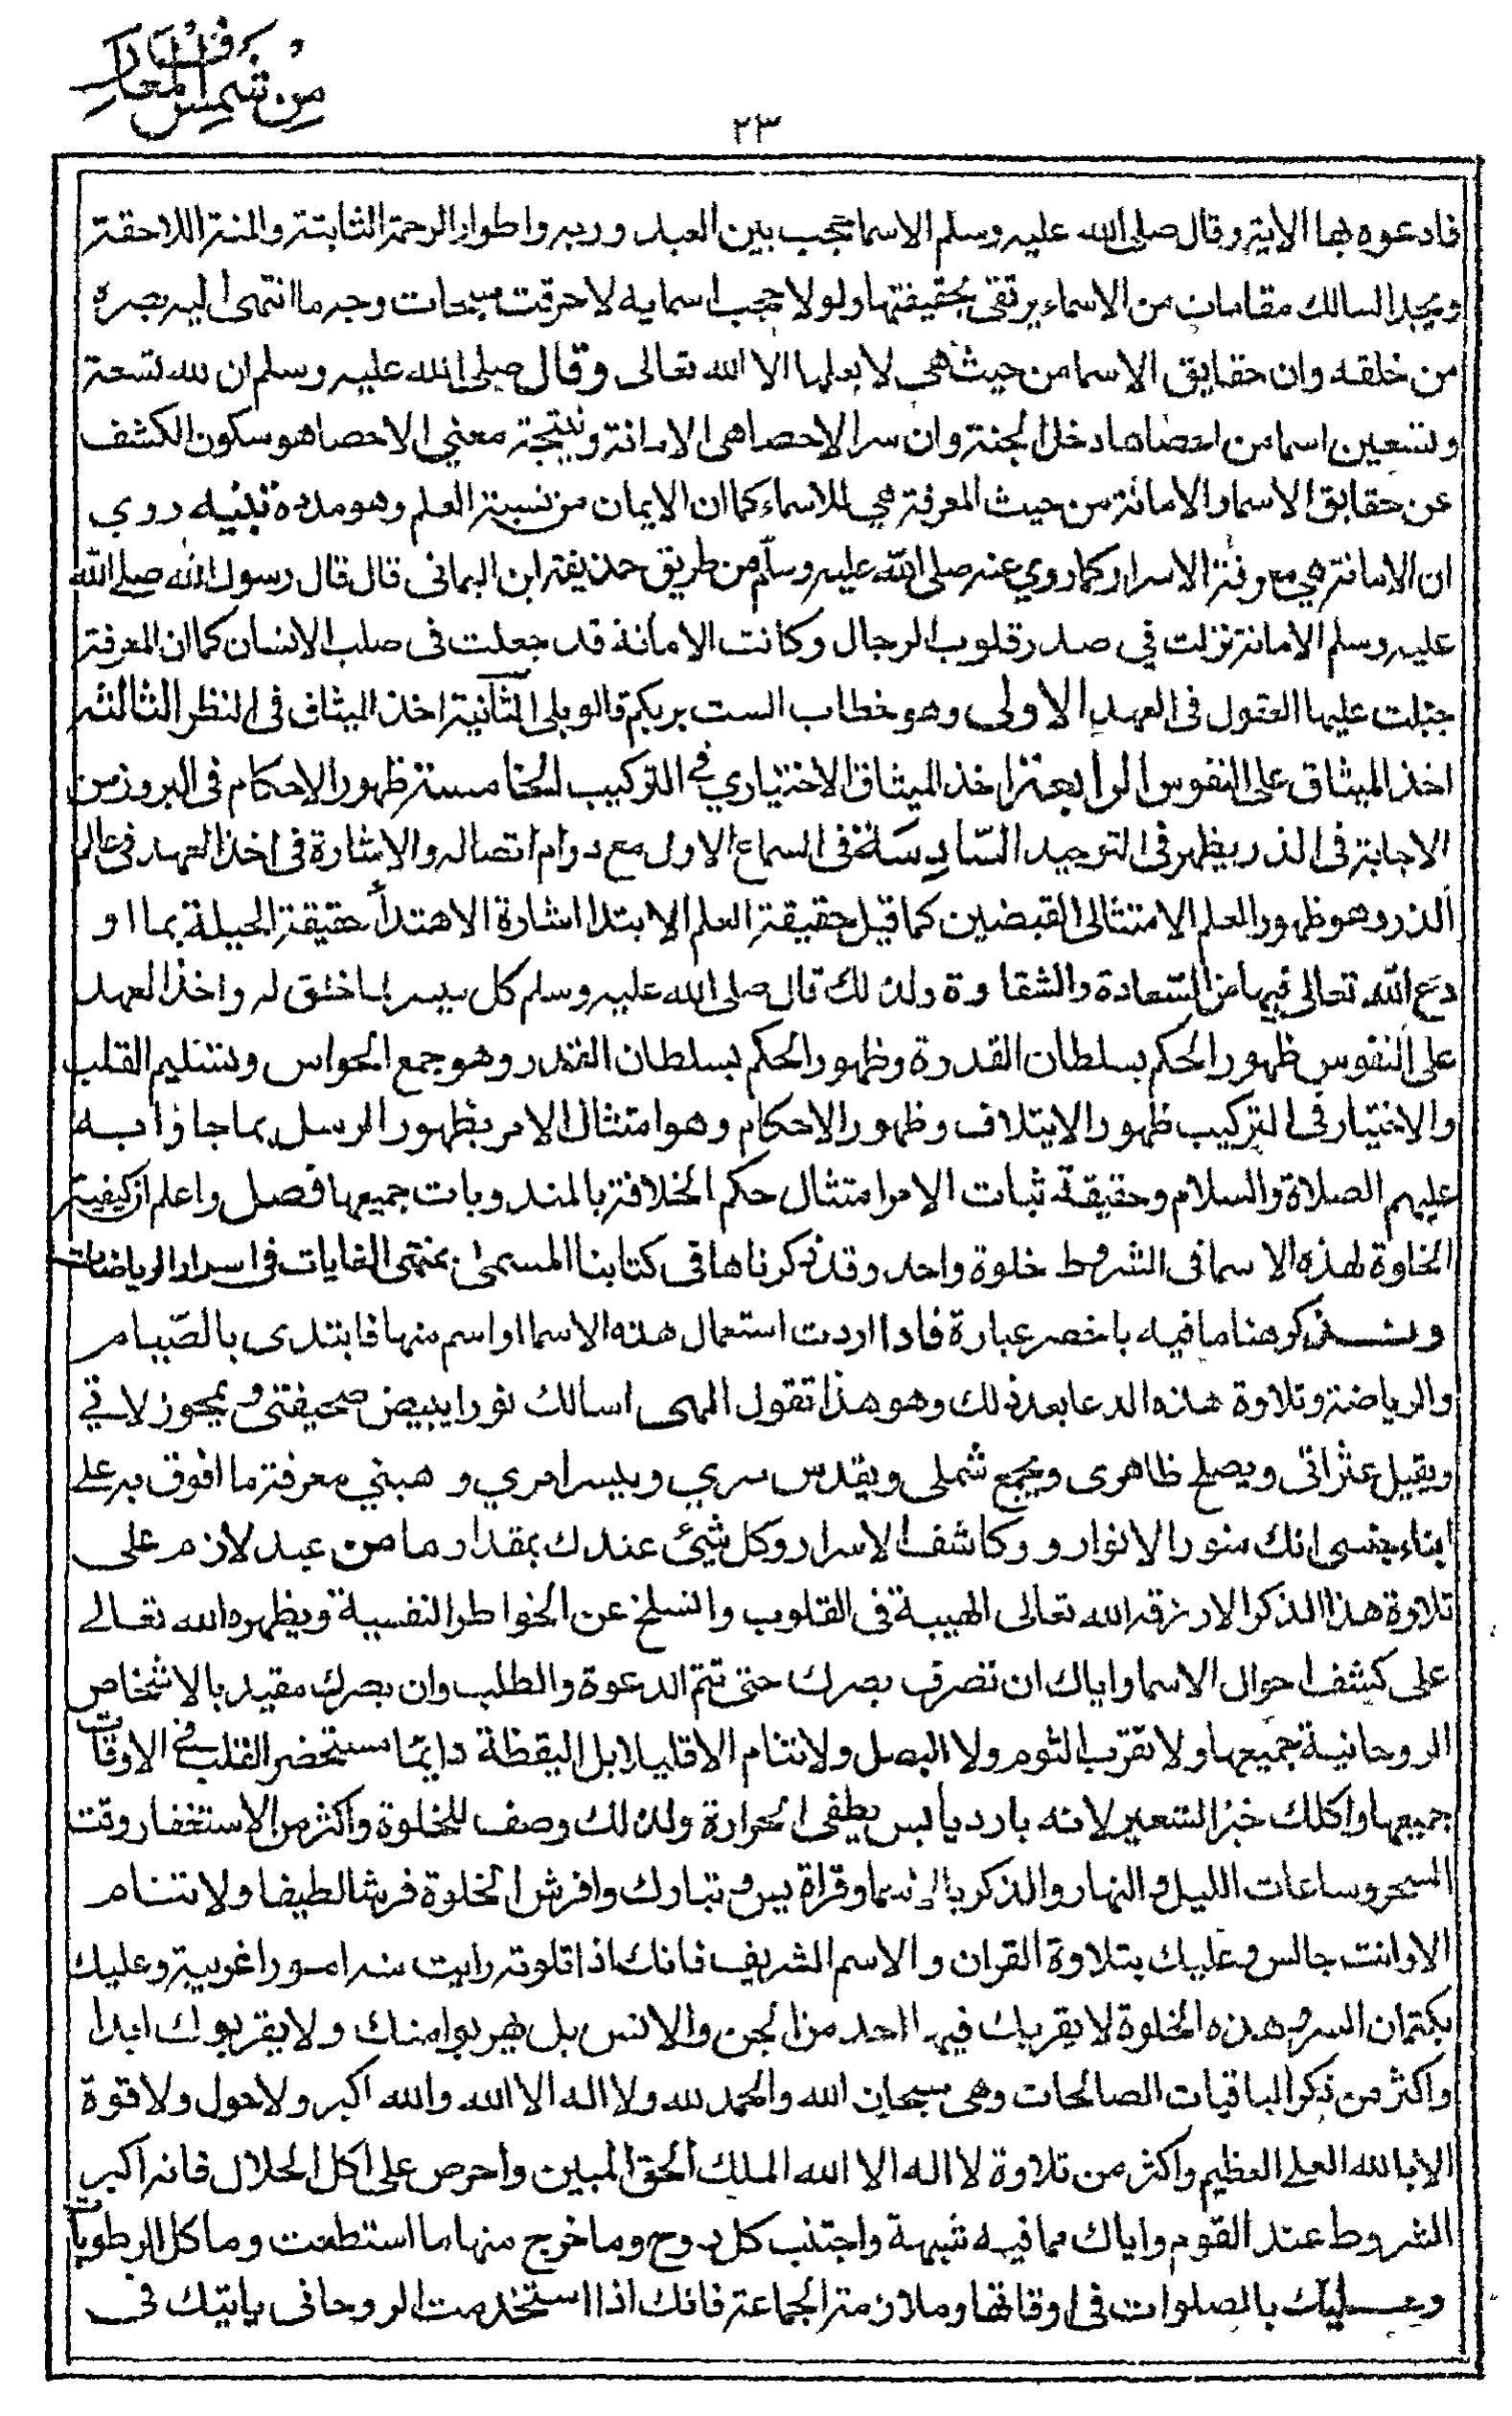 من شمس المعارف
٢٣
فادعوه بها الاية وقال صلى الله عليه وسلم الاسما تحجب بين العبد وربه واطوار الرحمة الثابتة والمنة اللاحقة
ويجد السالك مقامات من الاسماء يرتقى بحقيقتها ولولا حجب اسمايه لاحرقت سبحات وجه ما انتهى اليه بصره
من خلقه وان حقايق الاسما من حيث هى لا يعلمها الا الله تعالى وقال صلى الله عليه وسلم ان لله تسعة
وتسعين اسما من احصاها دخل الجنة وان سر الاحصا هى الامانة ونتيجة معنى الاحصا هو سكون الكشف
عن حقايق الاسما والامانة من حيث المعرفة هي للاسماء كما ان الايمان من نسبة العلم وهو مدة تنبيه روي
ان الامانة هي معرفة الاسرار كما روي عنه صلى الله عليه وسلم من طريق حذيفة ابن اليمانى قال قال رسول الله صلى الله
عليه وسلم الامانة نزلت في صدر قلوب الرجال وكانت الامانة قد جعلت فى صلب الانسان كما ان المعرفة
جبلت عليها العقول فى العهد الاولى وهو خطاب الست بربكم قالو بلى الثانية اخذ الميثاق فى النظر الثالثة
اخذ الميثاق على النفوس الرابعة اخذ الميثاق الاختياري في التركيب الخامسة ظهور الاحكام فى البروز من
الاجابة فى الذر بظهر فى التوحيد السادسة فى السماع الاول مع دوام اتصاله والاشارة فى اخذ العهد فى عالم
الذر وهو ظهور العلم الامتثالى القبضين كما قيل حقيقة العلم الابتدا اشارة الاهتدأ حقيقة الحيلة بما او
دع الله تعالى فيها من السعادة والشقاوة ولذلك قال صلى الله عليه وسلم كل ميسر لما خلق له واخذ العهد
على النفوس ظهور الحكم بسلطان القدرة وظهور الحكم بسلطان القدر وهو جمع الحواس وتسليم القلب
والاختيار فى التركيب ظهور الايتلاف وظهور الاحكام وهو امتثال الامر بظهور الرسل بما جاؤا به
عليهم الصلاة والسلام وحقيقة ثبات الامر امتثال حكم الخلافة بالمندوبات جميعها فصل واعلم ان كيفية
الخلوة لهذه الاسما فى الشروط خلوة واحد وقد ذكرناها فى كتابنا المسمى بمنتهى الغايات فى اسرار الرياضات
وسنذكر هنا ما فيه باخصر عبارة فاذا اردت استعمال هذه الاسما او اسم منها فابتدى بالصيام
والرياضة وتلاوة هذه الدعا بعد ذلك وهو هذا تقول الهى اسالك نورا يبيض صحيفتى ويمحو زلاتي
ويقيل عثراتى ويصلح ظاهرى ويجمع شملى ويقدس سري وييسر امري وهبني معرفة ما افوق به على
ابناء جنسى انك منور الانوار و وكاشف الاسرار وكل شيئ عندك بمقدار ما من عبد لازم على
تلاوة هذا الذكر الا رزقه الله تعالى الهيبة فى القلوب وانسلخ عن الخواطر النفسية ويظهره الله تعالى
على كشف احوال الاسما واياك ان تصرف بصرك حتى تتم الدعوة والطلب وان بصرك مقيد بالاشخاص
الروحانية جميعها ولا تقرب الثوم ولا البصل ولا تنام الا قليلا بل اليقظة دايما مستحضر القلب في الاوقات
جميعها واكلك خبز الشعير لانه بارد يابس يطفى الحرارة ولذلك وصف للخلوة واكثر من الاستغفار وقت
السحر وساعات الليل والنهار والذكر بالاسما وقراة يس وتبارك وافرش الخلوة فرشا لطيفا ولا تنام
الا وانت جالس وعليك بتلاوة القران والاسم الشريف فانك اذا تلوته رايت منه امورا غريبة وعليك
بكتمان السر وهذه الخلوة لا يقربك فيها احد من الجن والانس بل يهربوا منك ولا يقربوك ابدا
واكثر من ذكر الباقيات الصالحات وهى سبحان الله والحمد لله ولا اله الا الله والله اكبر ولا حول ولا قوة
الا بالله العلي العظيم واكثر من تلاوة لا اله الا الله الملك الحق المبين واحرص على اكل الحلال فانه اكبر
الشروط عند القوم واياك مما فيه شبهة واجتنب كل روح وما خرج منها ما استطعت وماكل الرطوبات
وعليك بالصلوات فى اوقاتها وملازمة الجماعة فانك اذا استخدمت الروحانى ياتيك فى